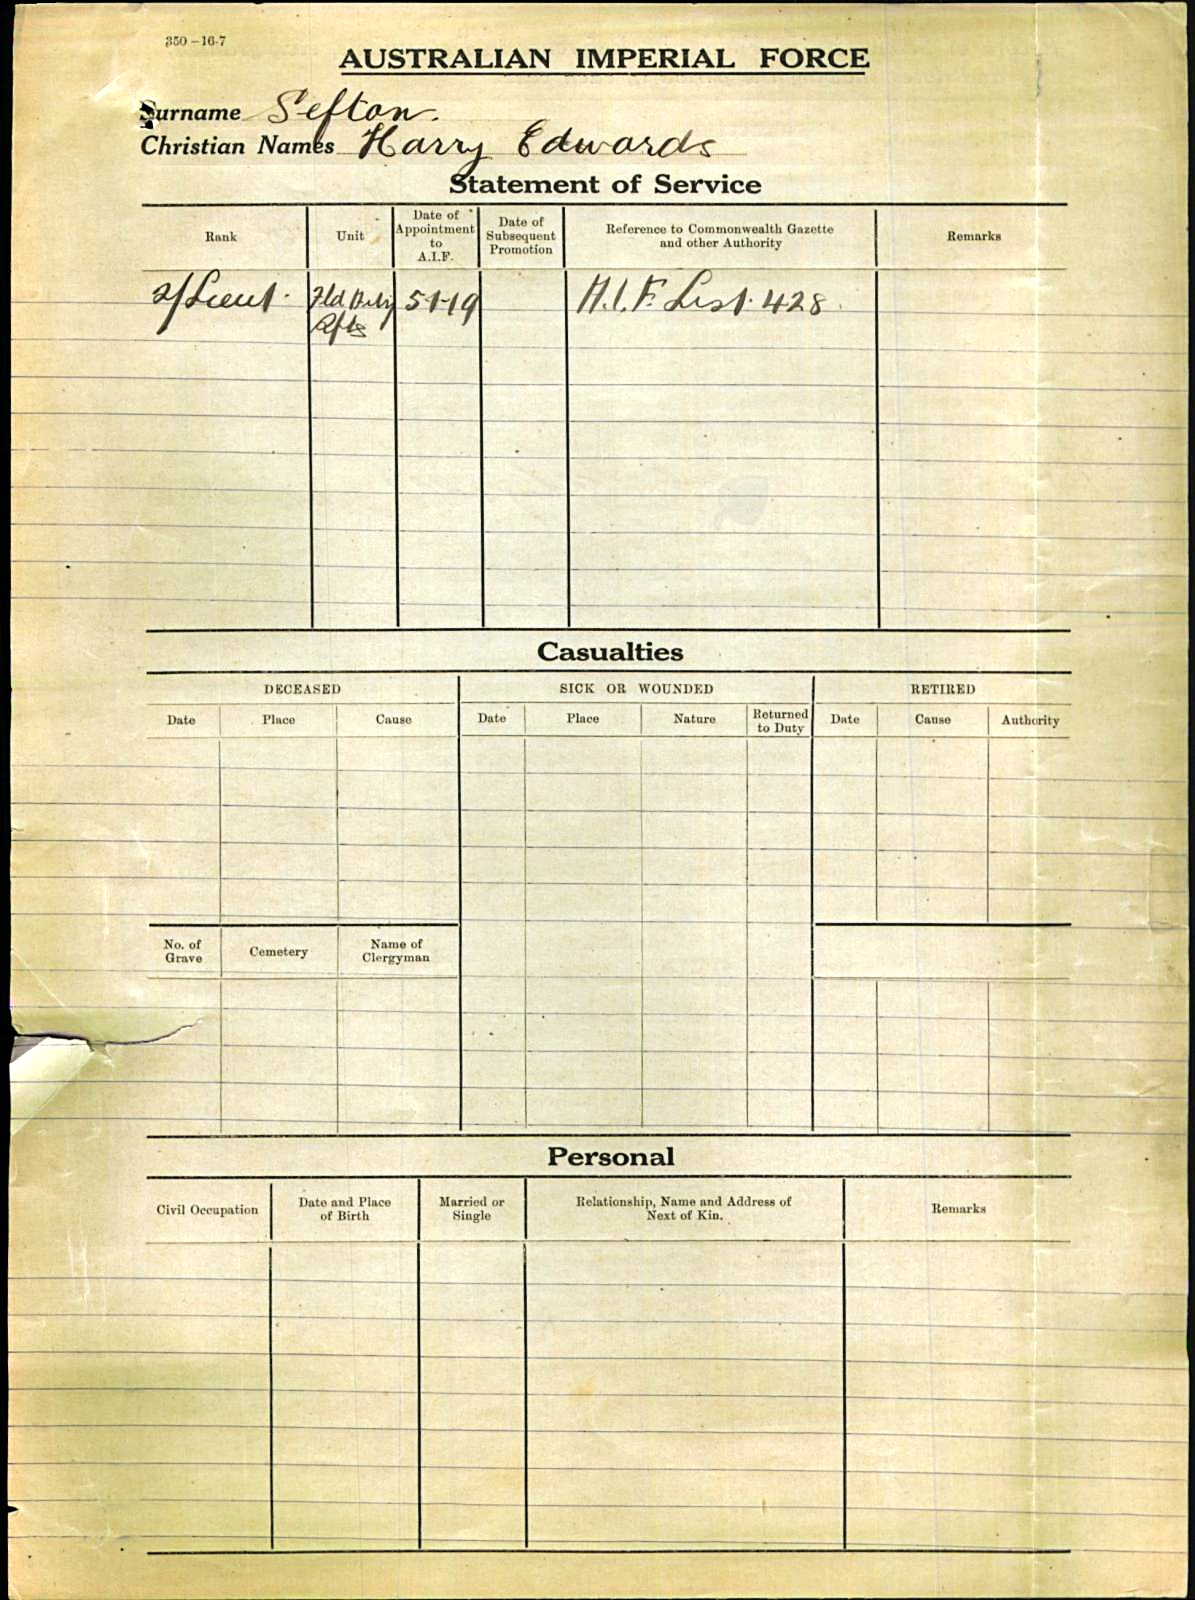 350 – 16-7
AUSTRALIAN IMPERIAL FORCE
Surname Sefton.
Christian Names Harry Edwards
Statement of Service
Rank
Unit
Date of Appointment to A.I.F.
Date of Subsequent Promotion
Reference to Commonwealth Gazette and other Authority
Remarks
2/Lieut.
Fld Arty
Rfts
5-1-19
A.I.F. List. 428.
Casualties
DECEASED
SICK OR WOUNDED
RETIRED
Date
Place
Cause
Date
Place
Nature
Returned to Duty
Date
Cause
Authority
No. of Grave
Cemetery
Name of Clergyman
Personal
Civil Occupation
Date and Place of Birth
Married or Single
Relationship, Name and Address of Next of Kin.
Remarks